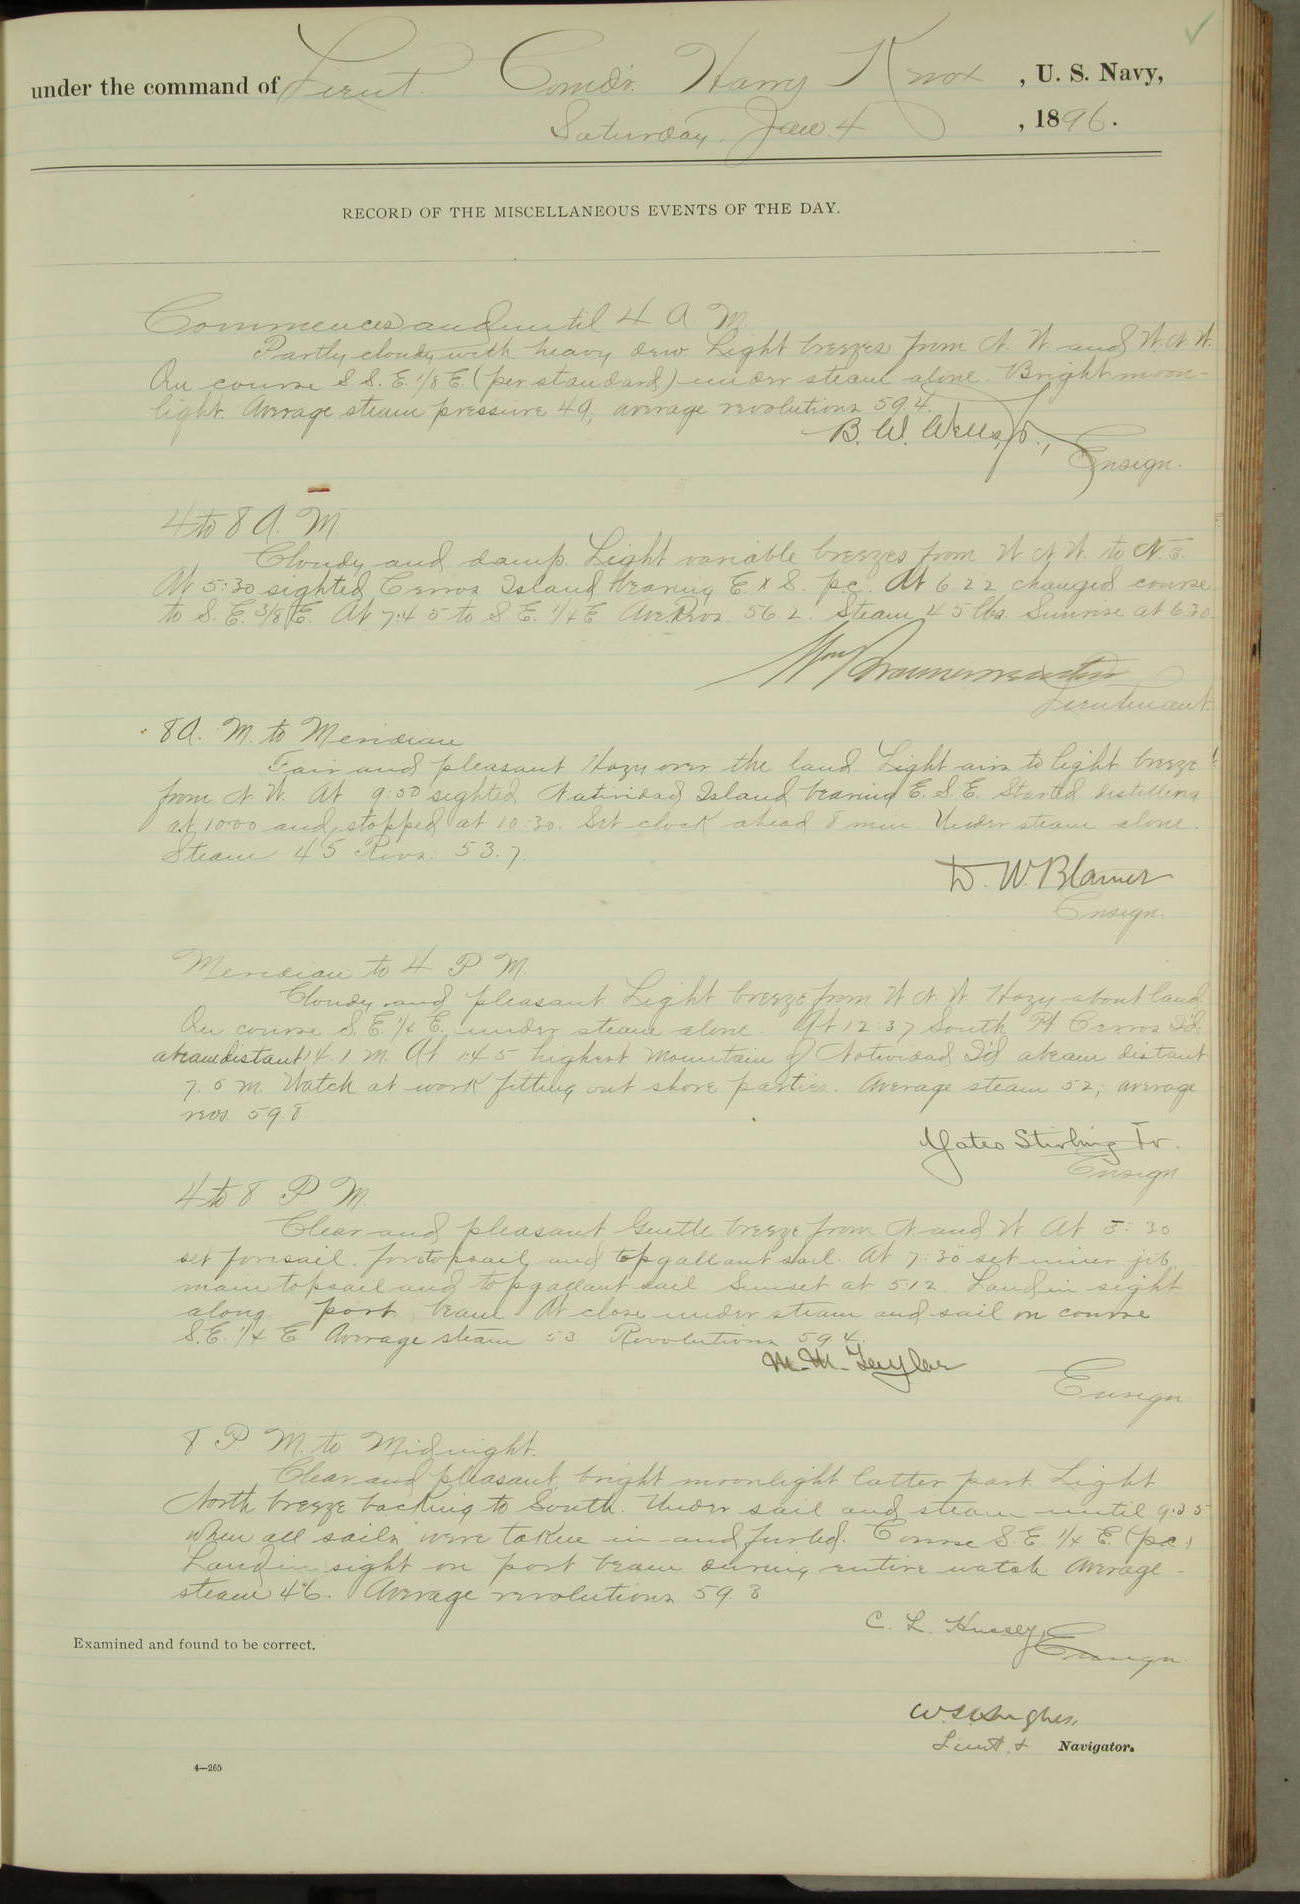 under the command of Lieut. Comd'r. Harry Knox, U. S. Navy,
Saturday, Jan. 4, 1896.
RECORD OF THE MISCELLANEOUS EVENTS OF THE DAY.
Commences and until 4 A M.
Partly cloudy with heavy dew. Light breezes from N. W. and W. N. W.
On course S. S. E. 1/8 E. (per standard) under steam alone. Bright moon-
light. Average steam pressure 49, average revolutions 59.4.
B. W. Wells, Jr.,
Ensign.
4 to 8 A. M.
Cloudy and damp. Light variable breezes from W N W. to N. E.
At 5:30 sighted Cerros Island bearing E. x S. p.c. At 6 22 changed course
to S. E. 3/8 E. At 7:45 to S. E. 1/4 E Ave. Revs. 56.2. Steam 45 lbs. Sunrise at 6:30.
Wm
Lieutenant.
8 A. M. to Meridian
Fair and pleasant Hazy over the land. Light airs to light breeze
from N. W. At 9:50 sighted Natividad Island bearing E. S. E. Started distilling
at 10 00 and stopped at 10:30. Set clock ahead 8 min Under steam alone.
Steam 45 Revs. 53.7.
D. W. Blamer
Ensign.
Meridian to 4 P. M.
Cloudy and pleasant. Light breeze from W. N. W. Hazy about land.
On course S. E. 1/4 E. under steam alone. At 12:37 South Pt Cerros I'd.
abeam distant 14.1 m. At 1:45 highest mountain of Natividad I'd abeam distant
7.5 m. Watch at work fitting out shore parties. Average steam 52; average
revs. 59.8
Yates Stirling Jr.
Ensign
4 to 8 P. M.
Clear and pleasant Gentle breeze from N and W. At 5:30
set foresail, foretopsail and topgallant sail. At 7:30 set inner jib,
main topsail and topgallant sail Sunset at 5:12. Land in sight
along port beam At close under steam and sail on course
S.E. 1/4 E. Average steam 53 Revolutions 59 4.
M. M. Taylor
Ensign
8 P M. to Midnight.
Clear and pleasant, bright moonlight latter part. Light
North breeze backing to South. Under sail and steam until 9:35
when all sails were taken in and furled. Course S. E. 1/4 E. (p.c.)
Land in sight on port beam during entire watch Average
steam 46. Average revolutions 59 3
C. L. Hussey,
Ensign.
Examined and found to be correct.
W. S. Hughes,
Lieut. & Navigator.
4—265